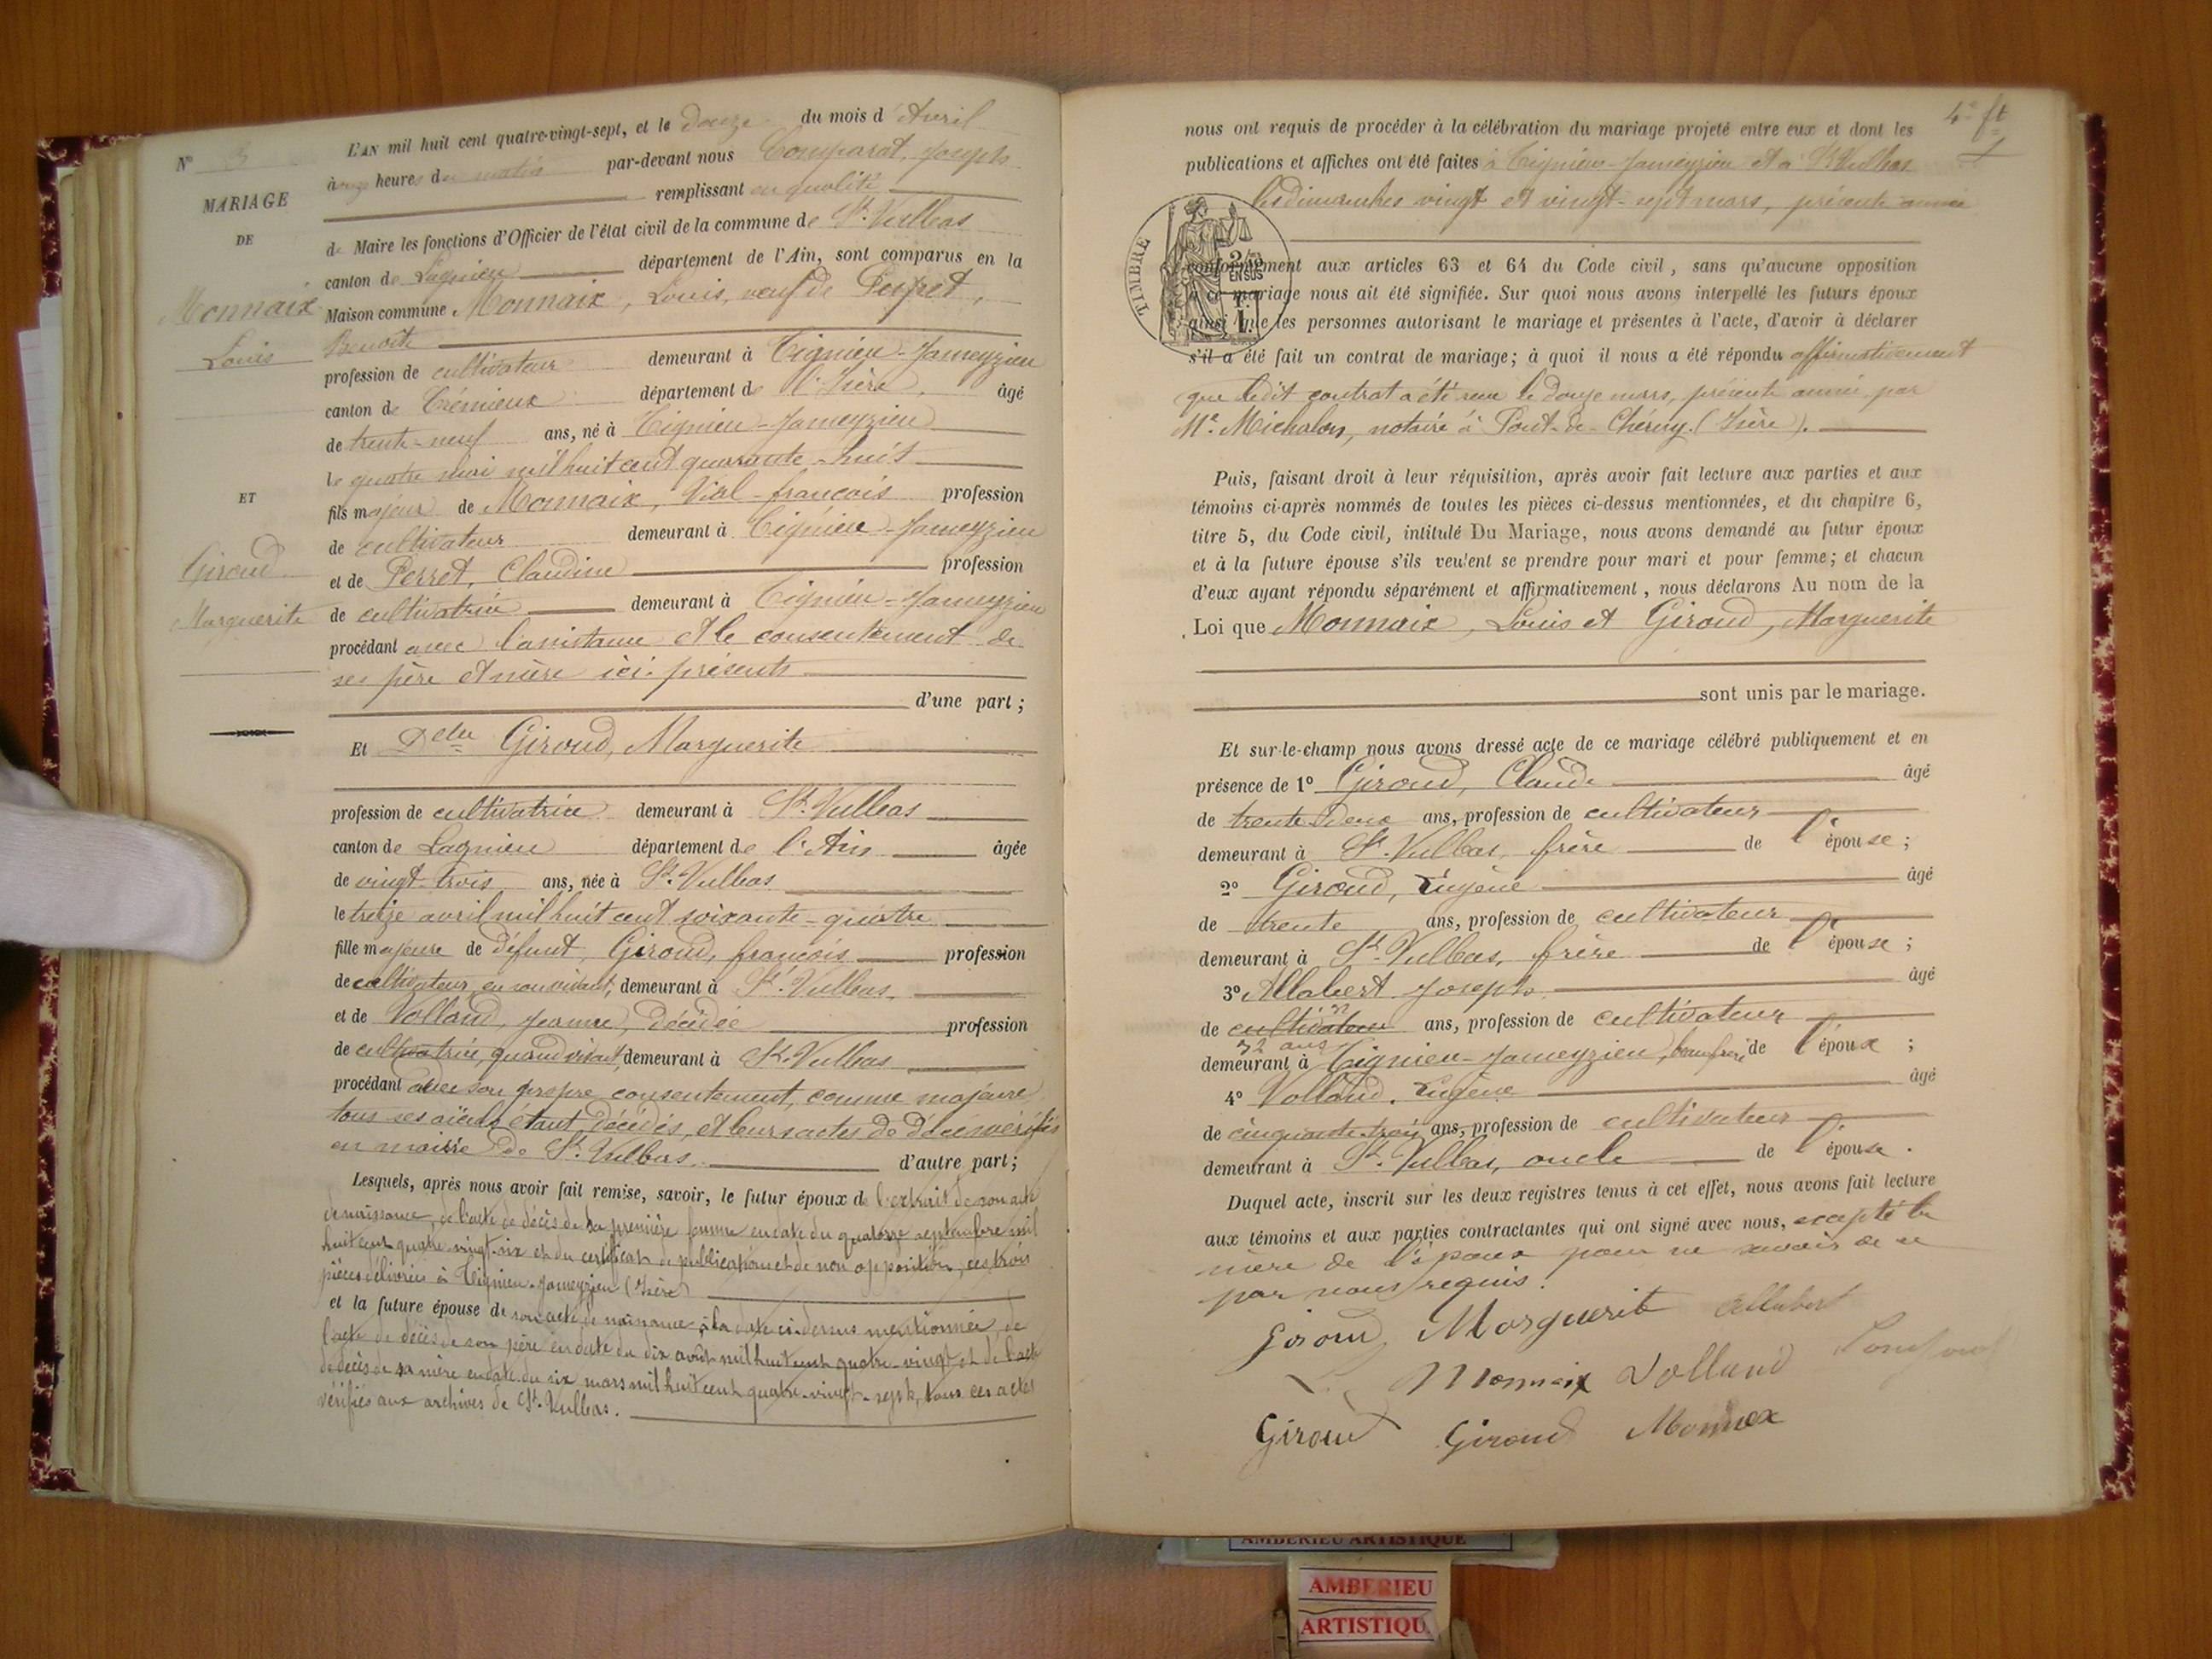 N° 3
MARIAGE
DE
Monnaix
Louis
ET
Giroud
Marguerite
L'AN mil huit cent quatre-vingt-sept, et le douze du mois d'Avril
à onze heures du matin par-devant nous Comparat, Joseph
remplissant en qualité
de Maire les fonctions d'Officier de l'état civil de la commune de St. Vulbas
canton de Lagnieu département de l'Ain, sont comparus en la
Maison commune Monnaix, Louis, veuf de
Benoîte
profession de cultivateur demeurant à Tignieu-Jameyzieu
canton de Crémieux département de l'Isère, âgé
de trente-neuf ans, né à Tignieu-Jameyzieu
le quatre mai mil huit cent quarante-huit
fils majeur de Monnaix, Vial-françois profession
de cultivateur demeurant à Tignieu-Jameyzieu
et de Perret, Claudine profession
de cultivatrice demeurant à Tignieu-Jameyzieu
procédant avec l'assistance et le consentement de
ses père et mère ici présents
d'une part;
Et Delle Giroud, Marguerite
profession de cultivatrice demeurant à St. Vulbas
canton de Lagnieu département de l'Ain âgée
de vingt-trois ans, née à St. Vulbas
le treize avril mil huit cent soixante-quatre
fille majeure de défunt, Giroud, françois profession
de cultivateur, en son vivant, demeurant à St. Vulbas
et de Volland, Jeanne, décédée profession
de cultivatrice, quand vivait, demeurant à St. Vulbas
procédant avec son propre consentement, comme majeure
tous ses aïeuls étant décédés, et leurs actes de décès vérifiés
en mairie de St. Vulbas d'autre part;
Lesquels, après nous avoir fait remise, savoir, le futur époux de l'extrait de son acte
de naissance, de l'acte de décès de sa première femme en date du quatorze septembre mil
huit cent quatre-vingt-six et du certificat de publication et de non opposition, ces trois
pièces délivrées à Tignieu-Jameyzieu (Isère)
et la future épouse de son acte de naissance, à la date ci-dessus mentionnée, de
l'acte de décès de son père en date du dix août mil huit cent quatre-vingt et de l'acte
de décès de sa mère en date du six mars mil huit cent quatre-vingt-sept, tous ces actes
vérifiés aux archives de St. Vulbas.
4e ft
nous ont requis de procéder à la célébration du mariage projeté entre eux et dont les
publications et affiches ont été faites à Tignieu-Jameyzieu et à St. Vulbas
les dimanches vingt et vingt-sept mars, présente année
TIMBRE
2/10
EN SUS
1 F.
conformément aux articles 63 et 64 du Code civil, sans qu'aucune opposition
à ce mariage nous ait été signifiée. Sur quoi nous avons interpellé les futurs époux
ainsi que les personnes autorisant le mariage et présentes à l'acte, d'avoir à déclarer
s'il a été fait un contrat de mariage; à quoi il nous a été répondu affirmativement
que ledit contrat a été reçu le douze mars, présente année, par
Me. Michalon, notaire à Pont-de-Chéruy (Isère).
Puis, faisant droit à leur réquisition, après avoir fait lecture aux parties et aux
témoins ci-après nommés de toutes les pièces ci-dessus mentionnées, et du chapitre 6,
titre 5, du Code civil, intitulé Du Mariage, nous avons demandé au futur époux
et à la future épouse s'ils veulent se prendre pour mari et pour femme; et chacun
d'eux ayant répondu séparément et affirmativement, nous déclarons Au nom de la
Loi que Monnaix, Louis et Giroud, Marguerite
sont unis par le mariage.
Et sur-le-champ nous avons dressé acte de ce mariage célébré publiquement et en
présence de 1° Giroud, Claude âgé
de trente-deux ans, profession de cultivateur
demeurant à St. Vulbas, frère de l'épouse;
2° Giroud, Eugène âgé
de trente ans, profession de cultivateur
demeurant à St. Vulbas, frère de l'épouse;
3° Allabert Joseph âgé
de cultivateur ans, profession de cultivateur
32 ans
demeurant à Tignieu-Jameyzieu, beau frère de l'époux;
4° Volland, Eugène âgé
de cinquante-trois ans, profession de cultivateur
demeurant à St. Vulbas, oncle de l'épouse.
Duquel acte, inscrit sur les deux registres tenus à cet effet, nous avons fait lecture
aux témoins et aux parties contractantes qui ont signé avec nous, excepté la
mère de l'époux pour ne savoir de ce
par nous requis.
Giroud Marguerite Allabert
Monnaix Volland
Giroud Giroud Monnex
AMBERIEU ARTISTIQUE
AMBERIEU
ARTISTIQU